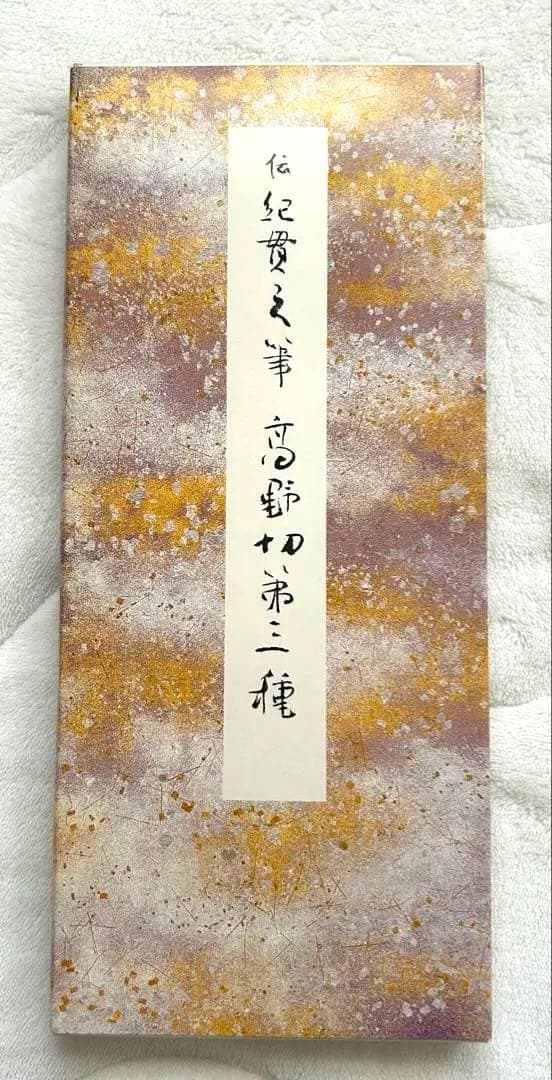 伝紀貫之筆 高野切第三種